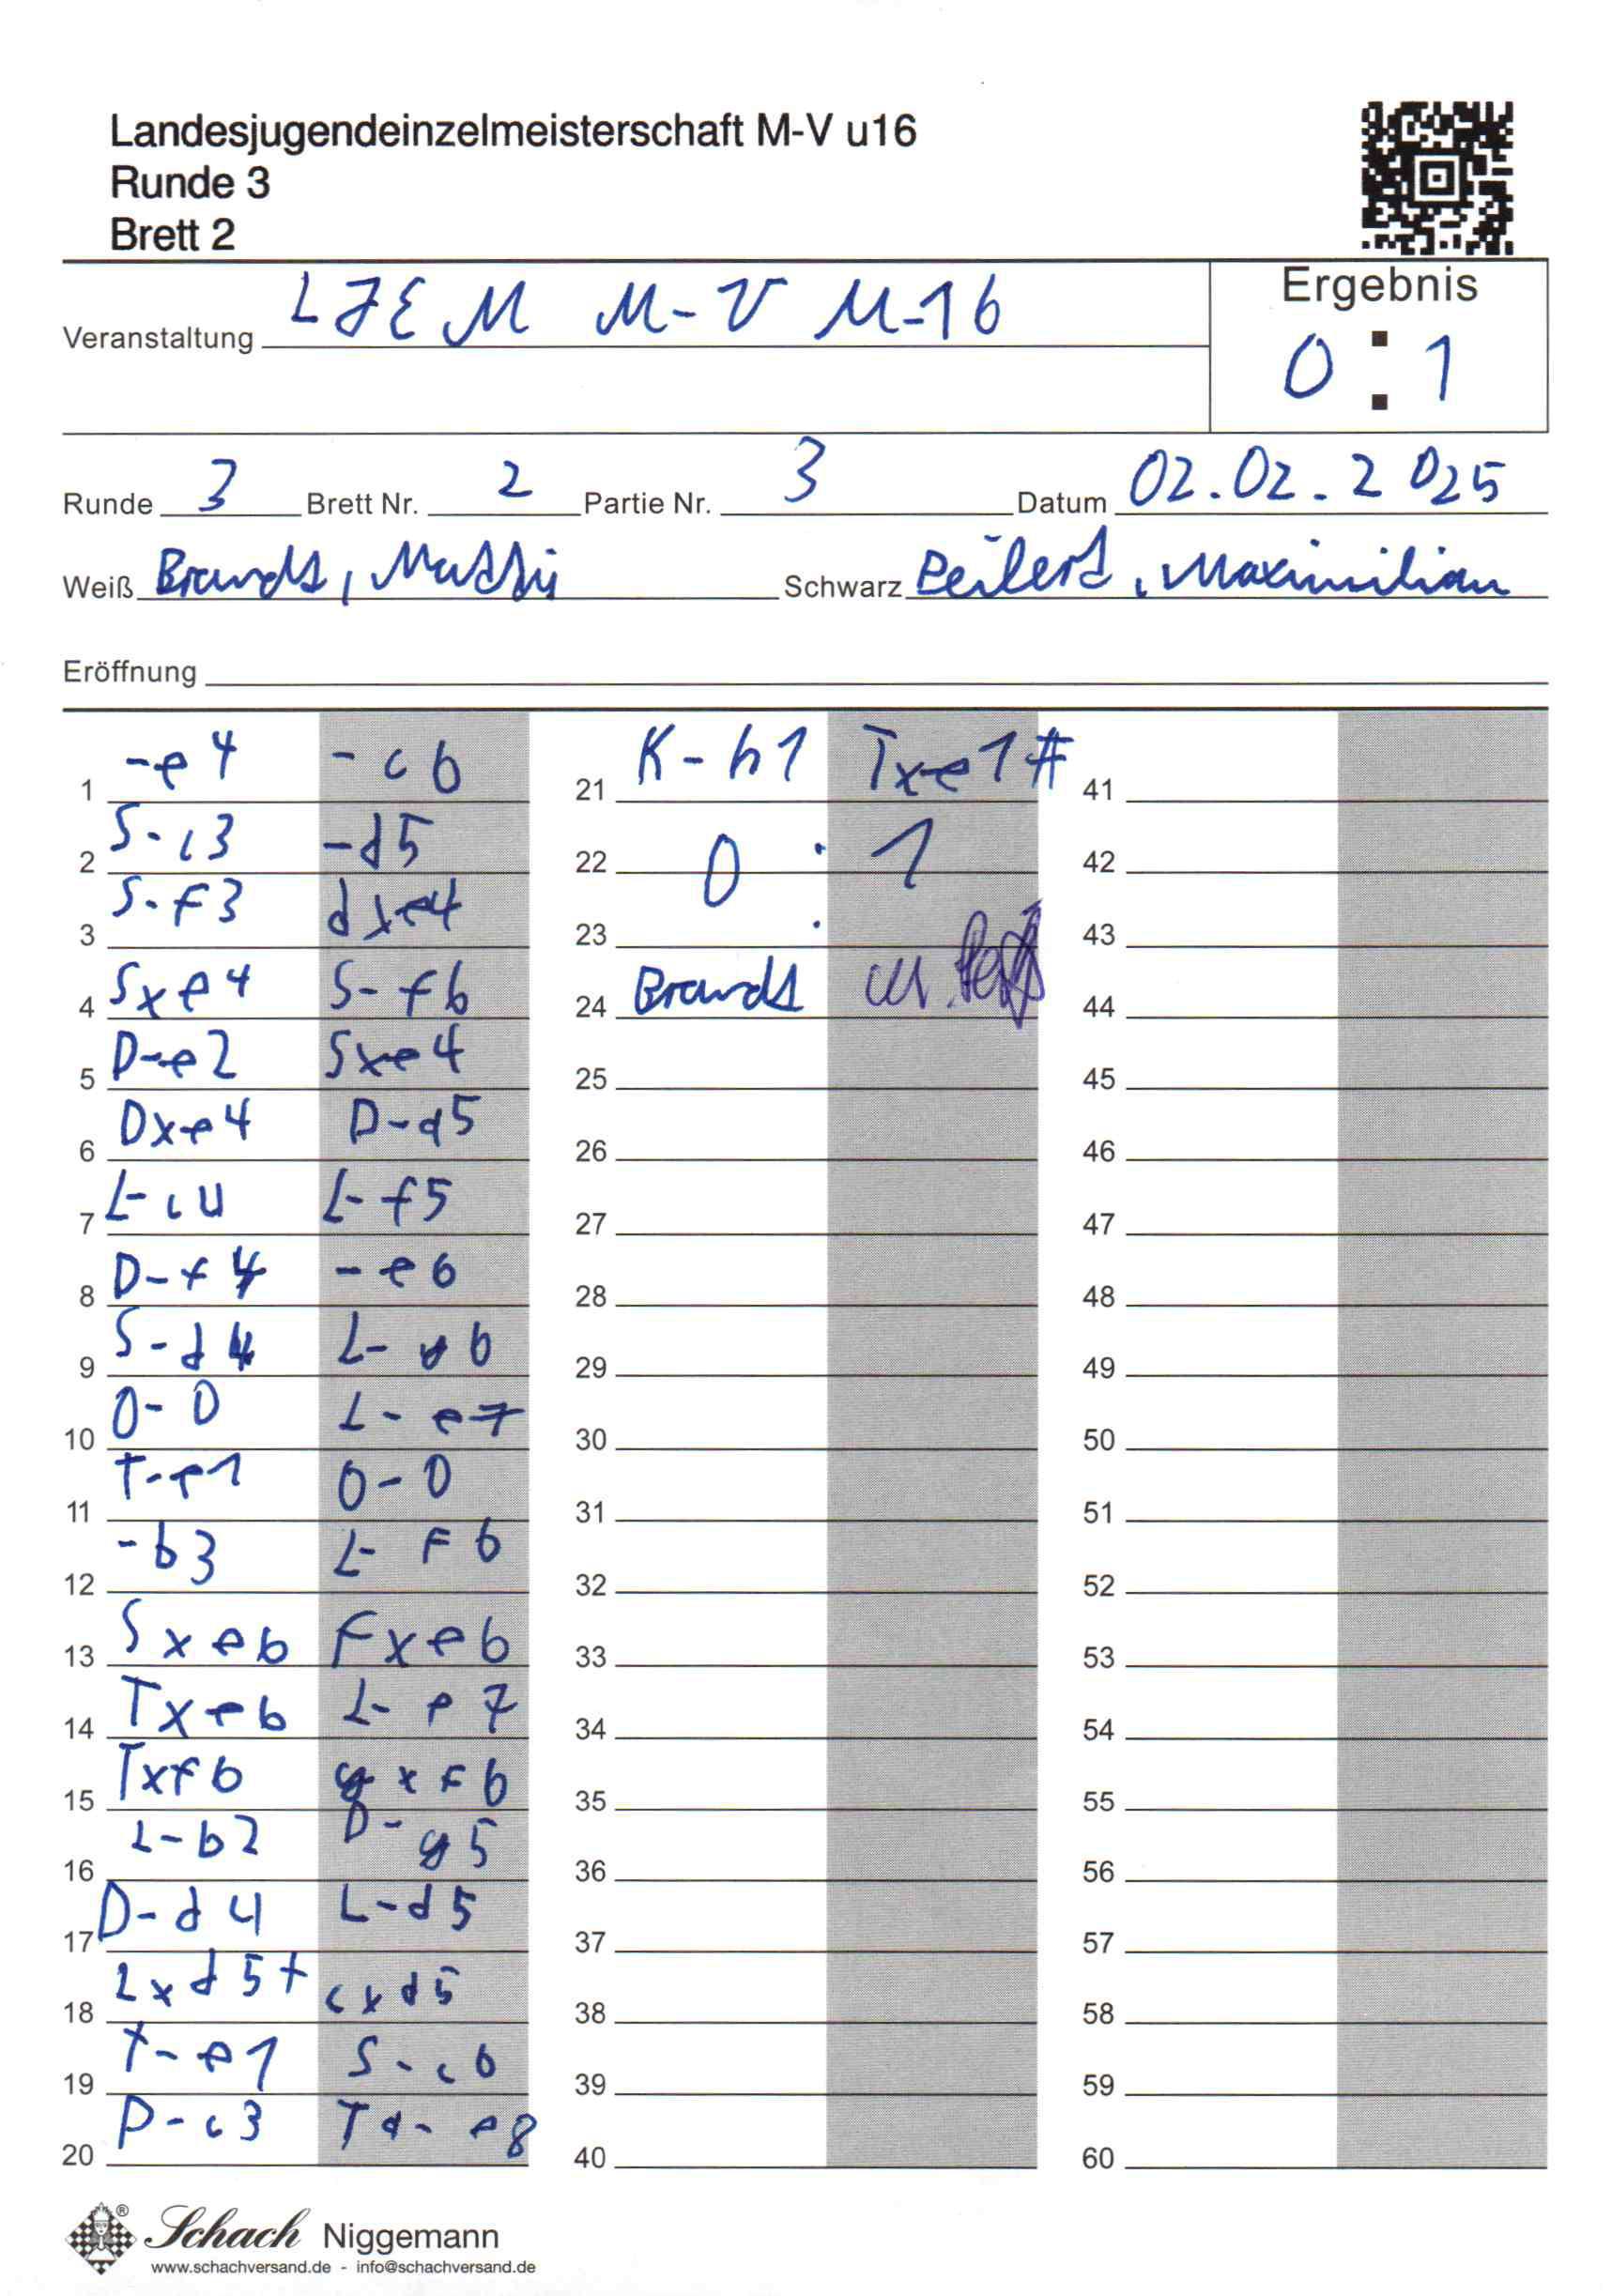 Landesjugendeinzelmeisterschaft M-V u16
Runde 3
Brett 2
Veranstaltung LJEM M-V U-16
Ergebnis
0 : 1
Runde 3 Brett Nr. 2 Partie Nr. 3 Datum 02.02.2025
Weiß Brandt, Matthis Schwarz Peilert, Maximilian
Eröffnung
1 -e4 -c6
2 S-c3 -d5
3 S-f3 dxe4
4 Sxe4 S-f6
5 D-e2 Sxe4
6 Dxe4 D-d5
7 L-c4 L-f5
8 D-f4 -e6
9 S-d4 L-g6
10 0-0 L-e7
11 T-e1 0-0
12 -b3 L-f6
13 Sxe6 Fxe6
14 Txe6 L-e7
15 Txf6 gxf6
16 L-b2 D-g5
17 D-d4 L-d5
18 Lxd5+ cxd5
19 T-e1 S-c6
20 D-c3 Ta-e8
21 K-h1 Txe1#
22 0 : 1
23
24 Brandt
25
26
27
28
29
30
31
32
33
34
35
36
37
38
39
40
41
42
43
44
45
46
47
48
49
50
51
52
53
54
55
56
57
58
59
60
Schach Niggemann
www.schachversand.de - info@schachversand.de